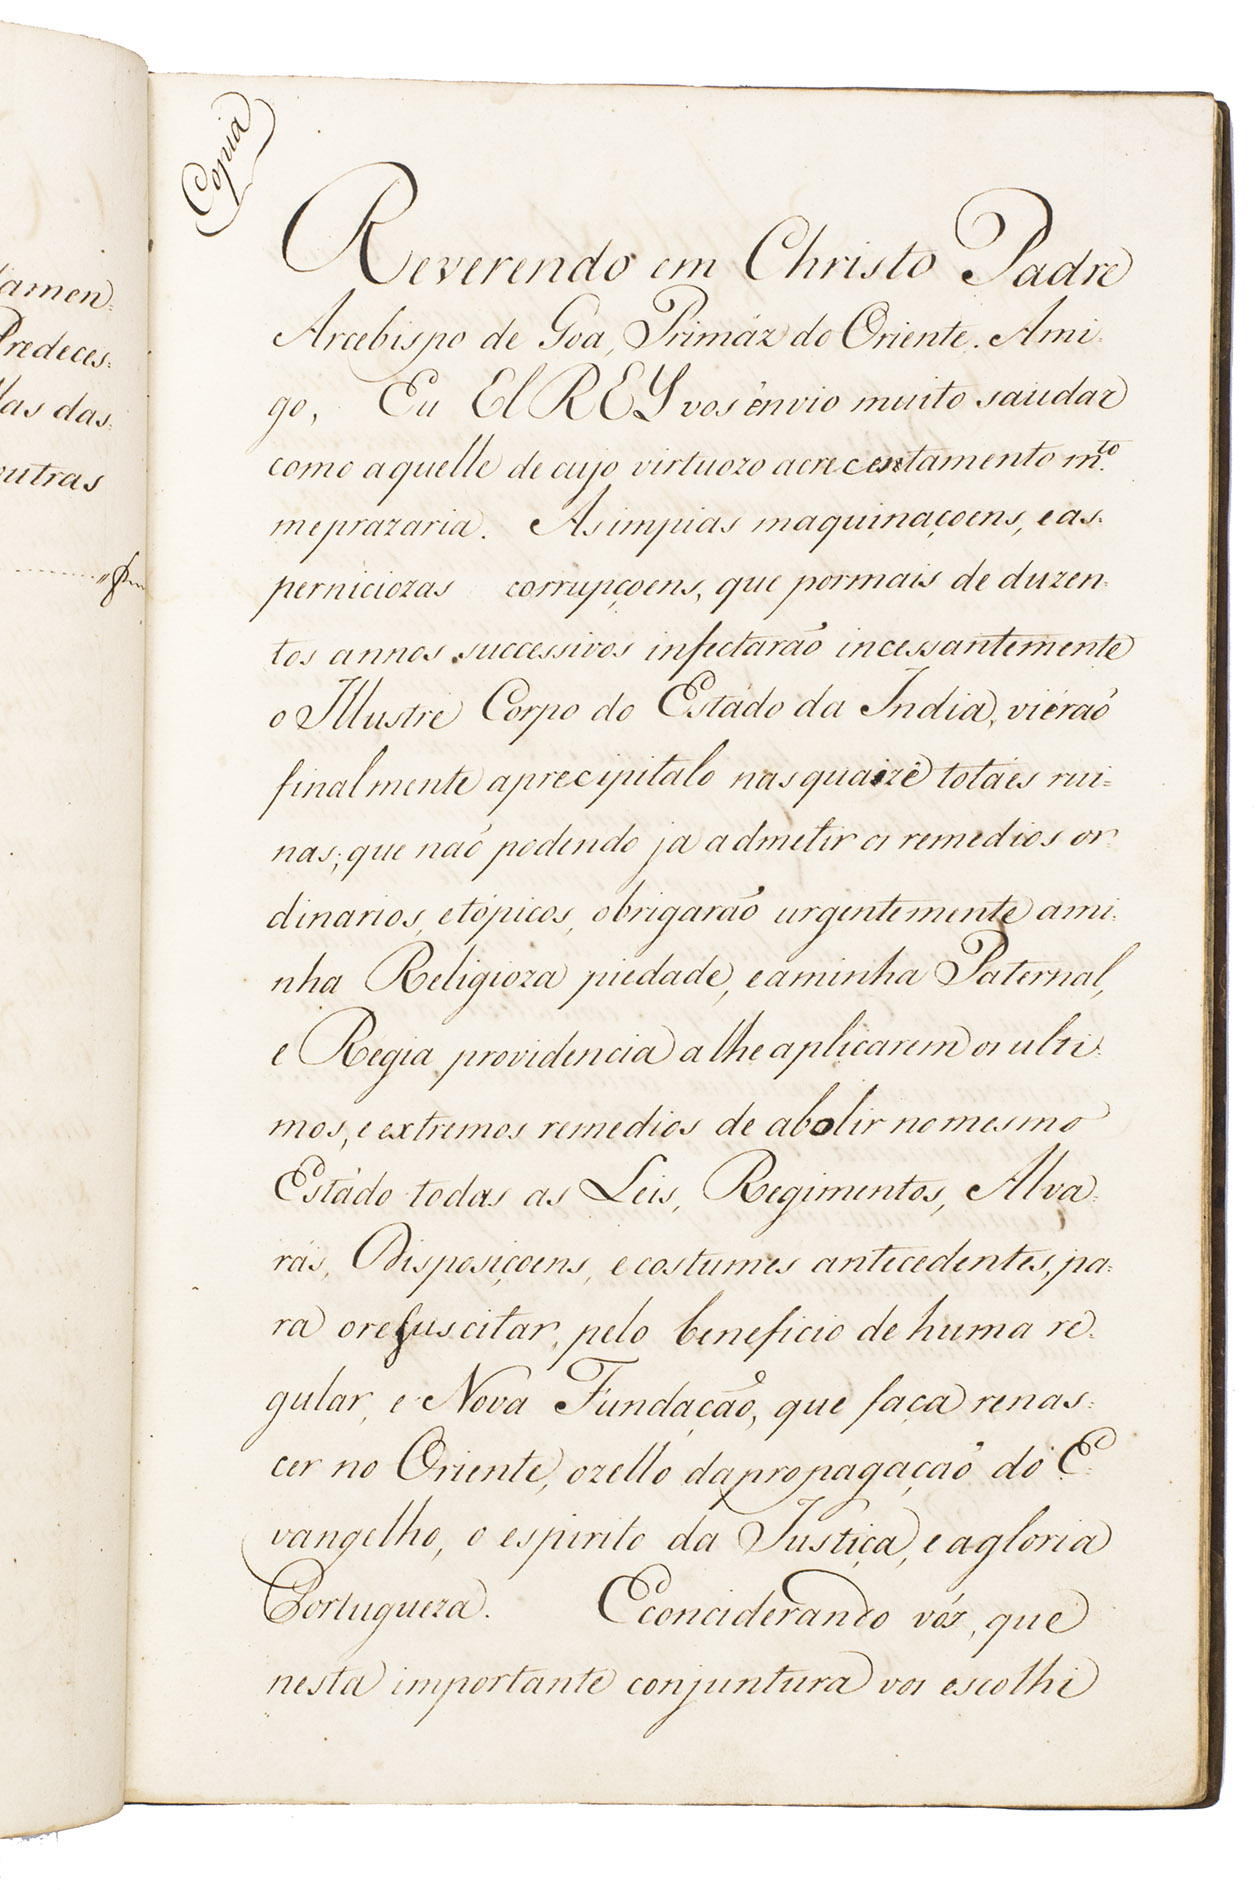 Copia
Reverendo em Christo Padre
Arcebispo de Goa, Primáz do Oriente. Ami:
go, Eu El REY vos envio muito saudar
como aquelle de cujo virtuozo acrecentamento m.to
meprazaria. As impias maquinaçoens, e as:
perniciozas corrupçoens, que pormais de duzen:
tos annos successivos infectaraõ incessantemente
o Illustre Corpo do Estádo da India, viéraõ
finalmente aprecipitalo nas quaize totáes rui:
nas; que naõ podendo ja admetir os remedios or:
dinarios, etópicos, obrigaraõ urgentemente ami:
nha Religioza piedade, eaminha Paternal,
e Regia providencia alhe aplicarem os ulti:
mos, e extremos remedios de abolir nomesmo
Estádo todas as Leis, Regimentos, Alva:
rás, Disposiçoens, ecostumes antecedentes, pa:
ra oresuscitar, pelo beneficio de huma re:
gular, e Nova Fundaçaõ, que faça renas:
cer no Oriente, ozello dapropagaçaõ do E:
vangelho, o espirito da Justiça, e agloria
Portugueza. Econciderando vós, que
nesta importante conjuntura vos escolhi
damen:
Predeces:
las das:
outras